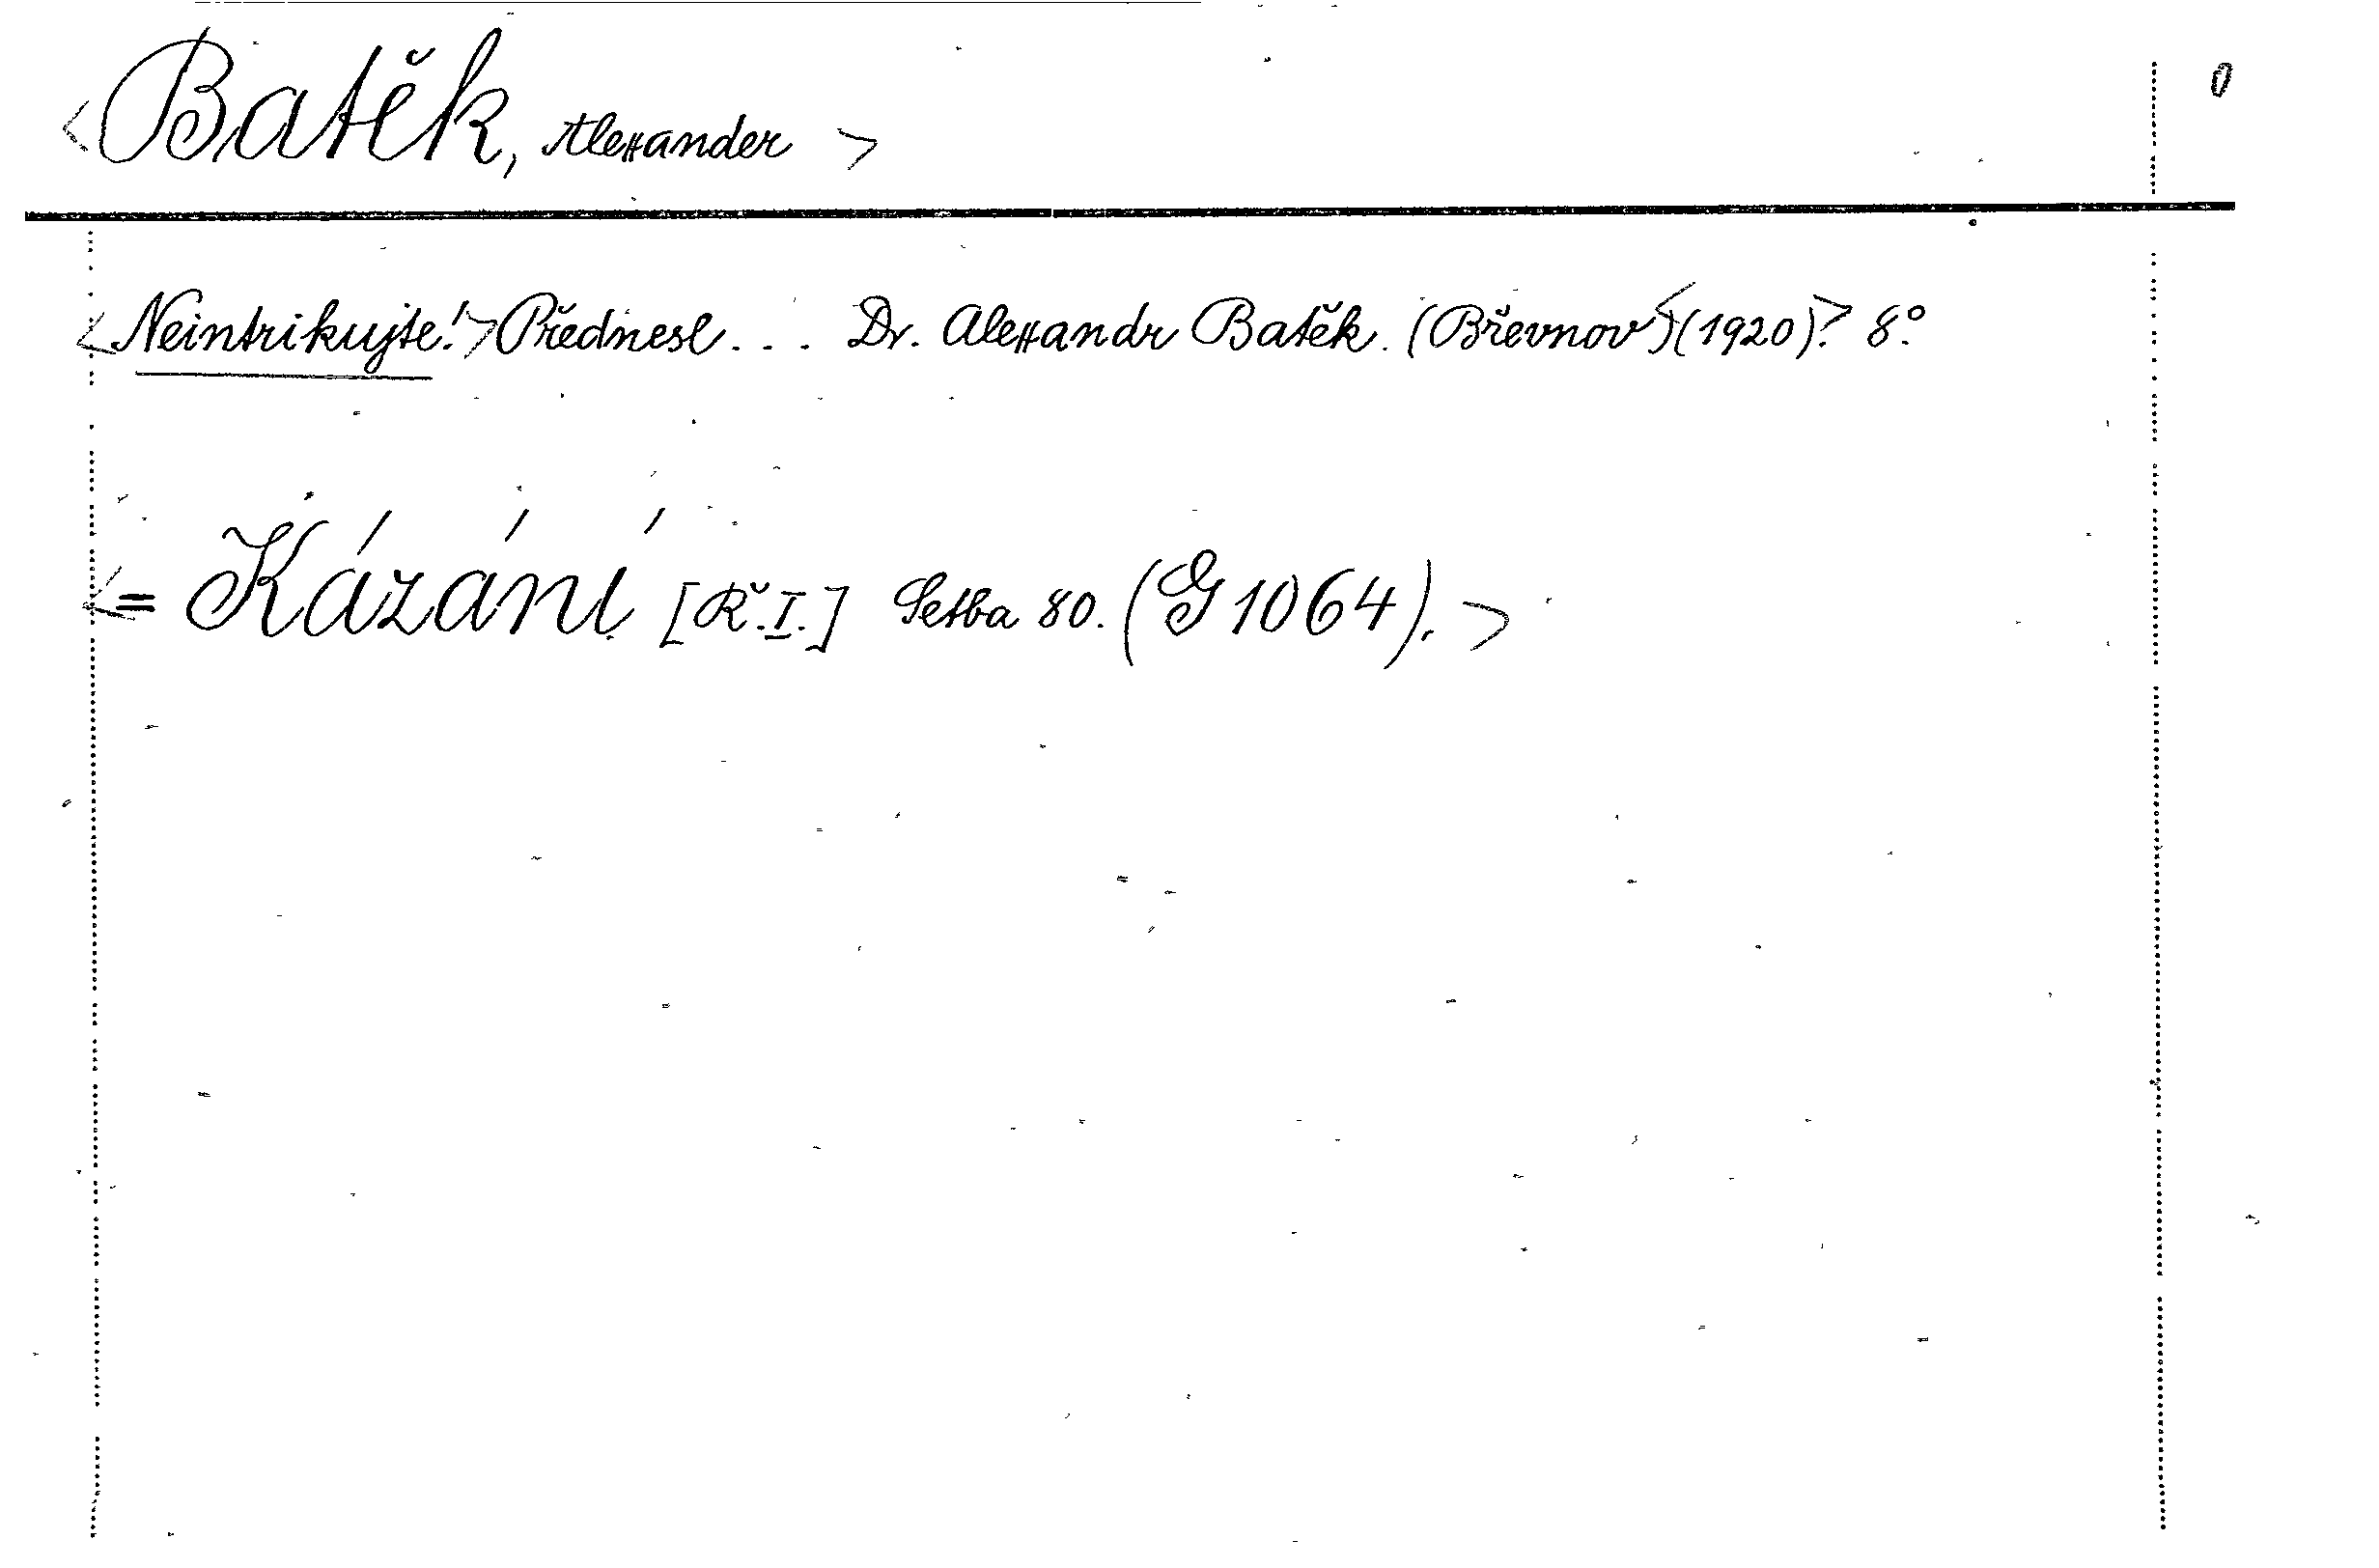 <Batěk, Alexander> 0
<Neintrikujte!> Přednesl... Dr. Alexandr Batěk. (Břevnov) <(1920).> 8°.
<= Kázání [Ř.I.] Setba 80. (G 1064).>